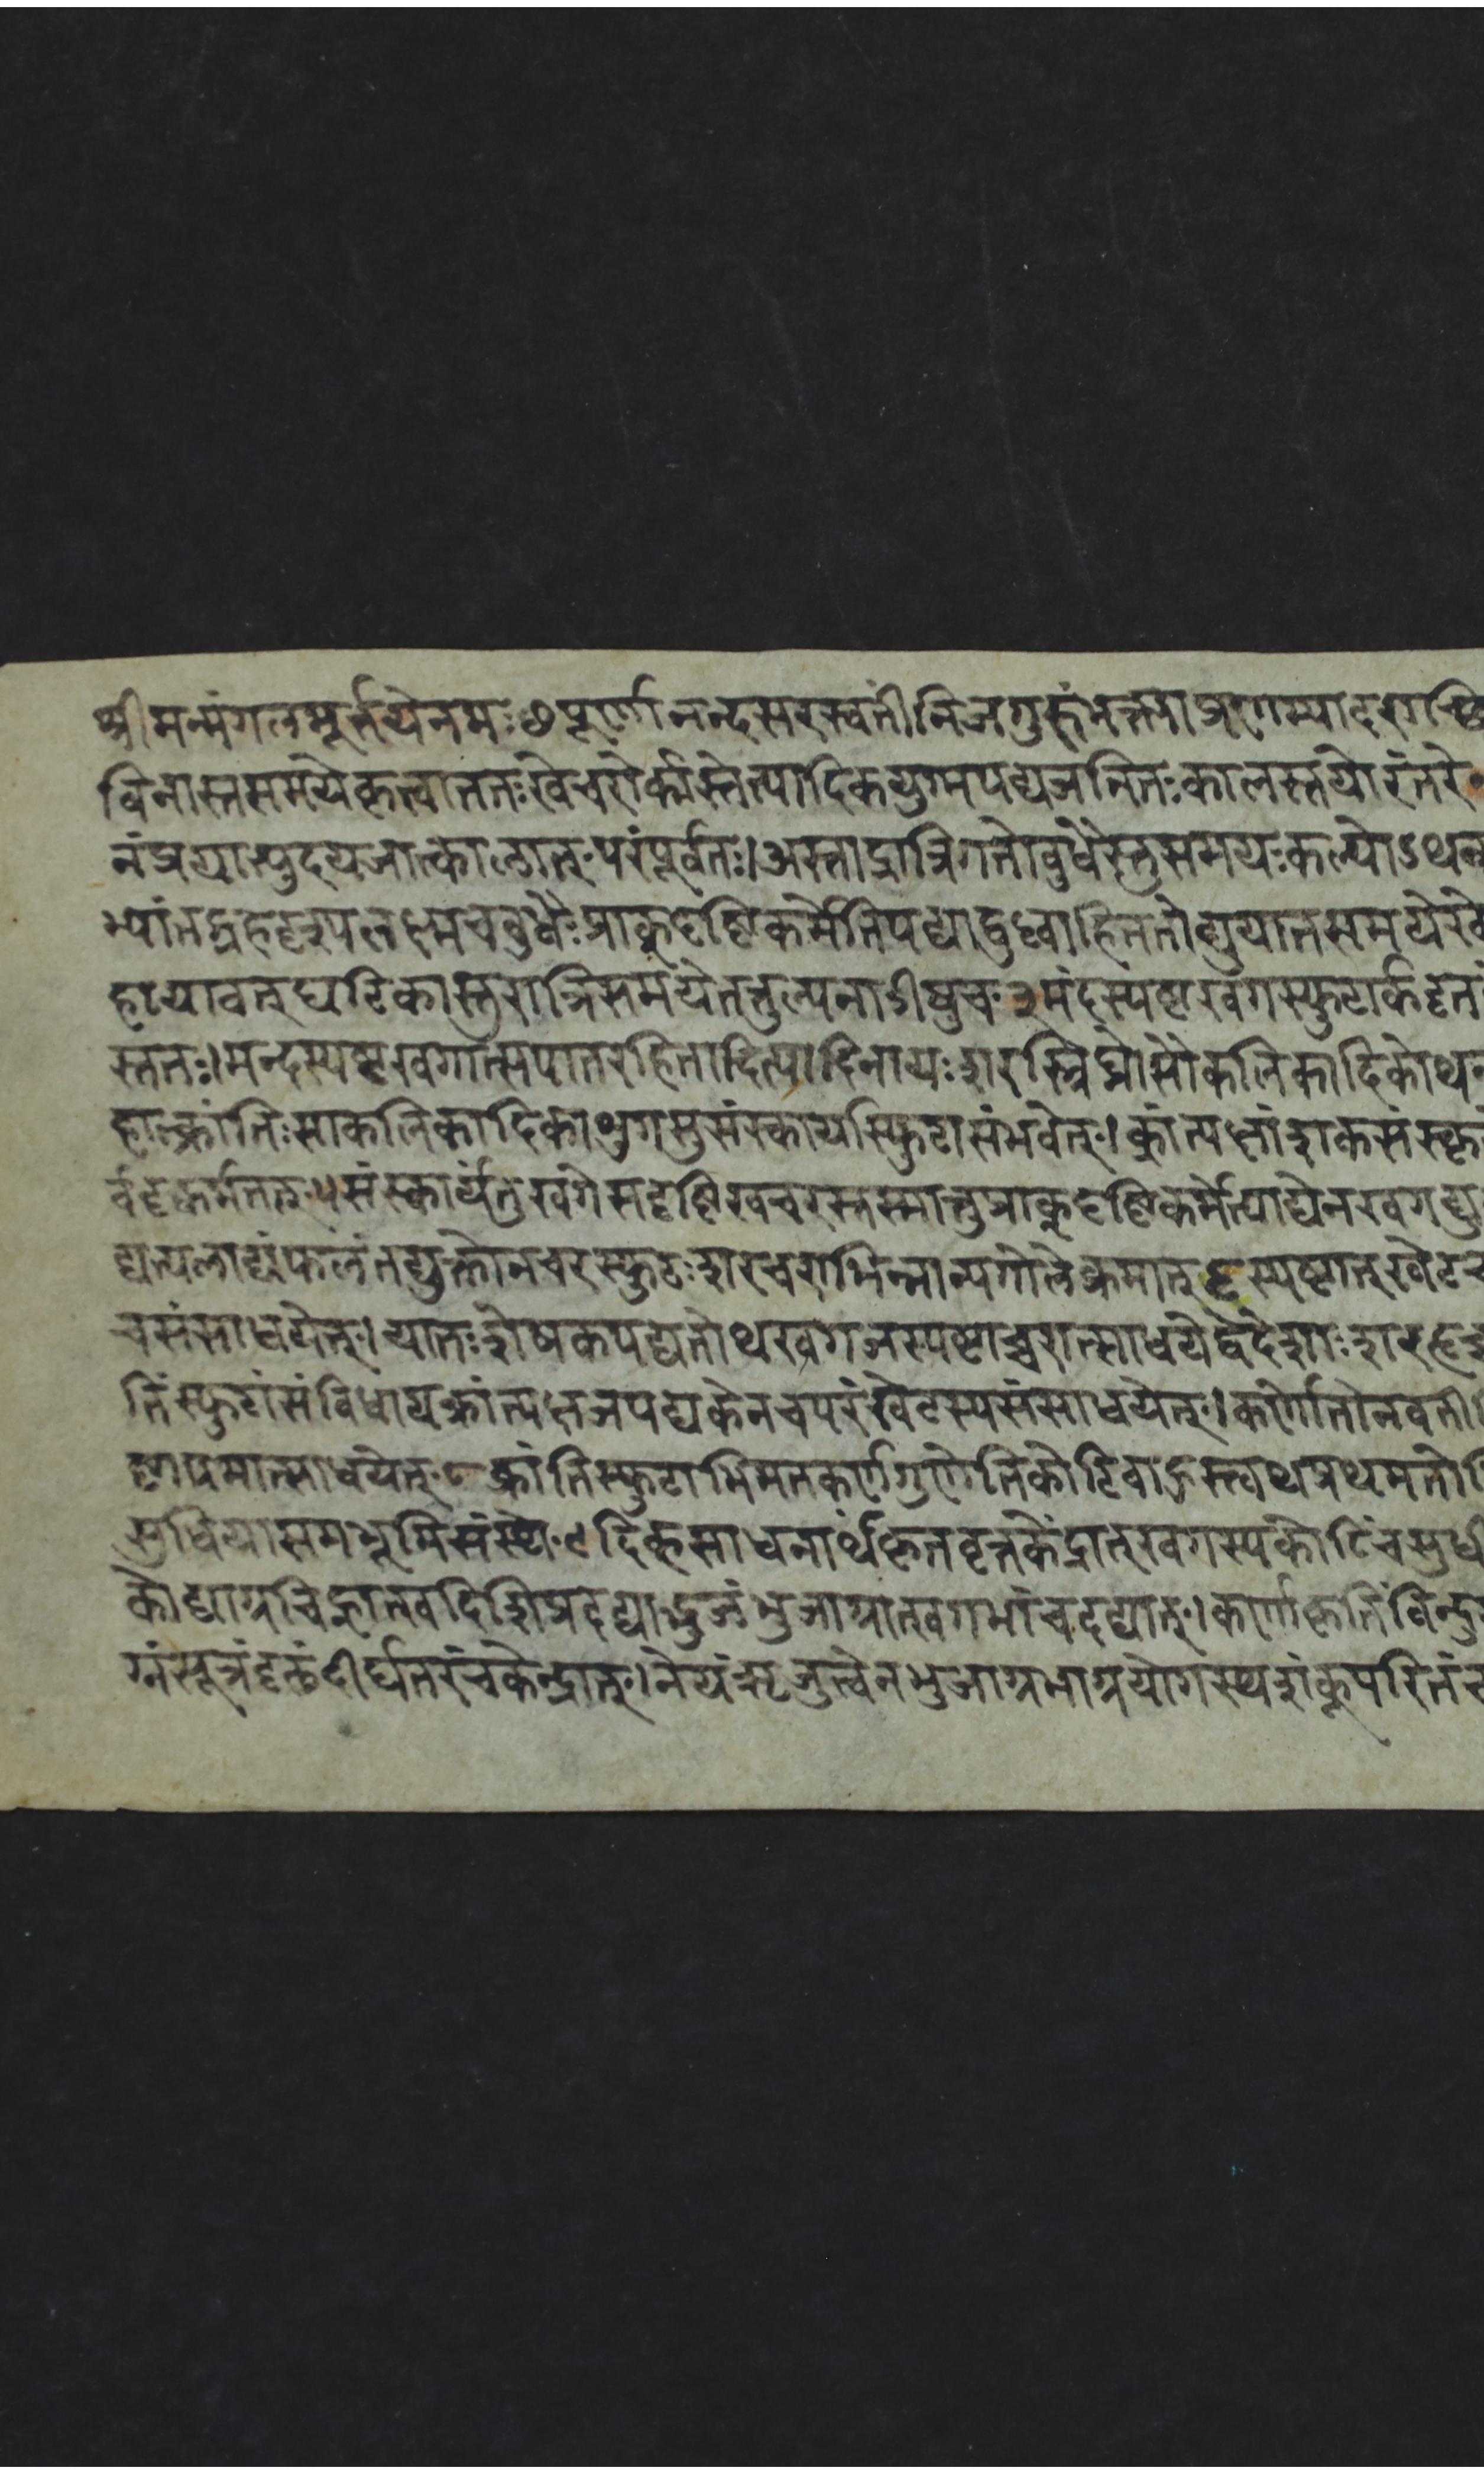 श्रीमन्मंगलमूर्त्तयेनमः ७ पूर्णानन्दसरस्वतीं निजगुरुं भक्त्या प्रणम्यादरा
विनास्तसमये कृत्वा ततः खेचरो र्कास्तेत्यादिकयुग्मपद्यजनितः कालस्तयोरंतरे
नं प्रयात्युदयजात्कालात्परंपूर्वतः। अस्ताद्रात्रिगतो बुधैस्तु समयः कल्प्योऽथ
भ्यां तद्ग्रहदृक्पलक्ष्मचबुधैः प्राक्दृष्टिकर्मेतिपद्याद्बुध्वाहिततोद्युयातसमये
हायावत्घटिकास्तरात्रिसमये तत्तुल्यनाडीषुच २ मंदस्पष्टखगस्फुटार्क
स्ततः। मन्दस्पष्टखगात्सपातरहितादित्यादिनायः शरस्त्रिघ्नोसौकलिकादिकोथ
हात्क्रांतिः साकलिकादिकाथ युगसुसंस्कार्यास्फुटासंभवेत्। क्रांत्यक्षांशकसंस्कृ
र्वदृक्कर्मतत् ५ संस्कार्यंतु खगे सदृष्टिखचरस्तस्मात्तु प्राक्दृष्टिकर्मेत्याद्येनखग
द्यत्पलाद्यंफलं तद्युक्तोनचरस्फुटः शरचराभिन्नान्यगोलेक्रमात् ६ स्पष्टात्खेट
चसंसाधयेत्। यातः शेषकपद्यतोथखगजस्पष्टाच्चरात्साधयेद्
तिंस्फुटांसंविधायक्रांत्यक्षजपद्यकेनचपरंखेटस्यसंसाधयेत्। कर्णातोनवती
ष्टापमात्साधयेत् ८ क्रांतिस्फुटाभिमतकर्णगुणेतिकोटिबाहुस्त्वथप्रथमतो
सुधियासमभूमिसंस्थे ९ दिक्साधनार्थंकृतवृत्तकेंद्रात्खगस्यकोटिंचसुधी
कोट्याग्रचिह्नात्खदिशिप्रदद्याद्भुजंभुजाग्रात्खगभांचदद्यात्। कर्णाकृतिं
ग्नंसूत्रंदृक्तंदीर्घतरंचकेन्द्रात्। नेयंऋजुत्वेनभुजाग्रभाग्रयोगस्थशंकूपरि